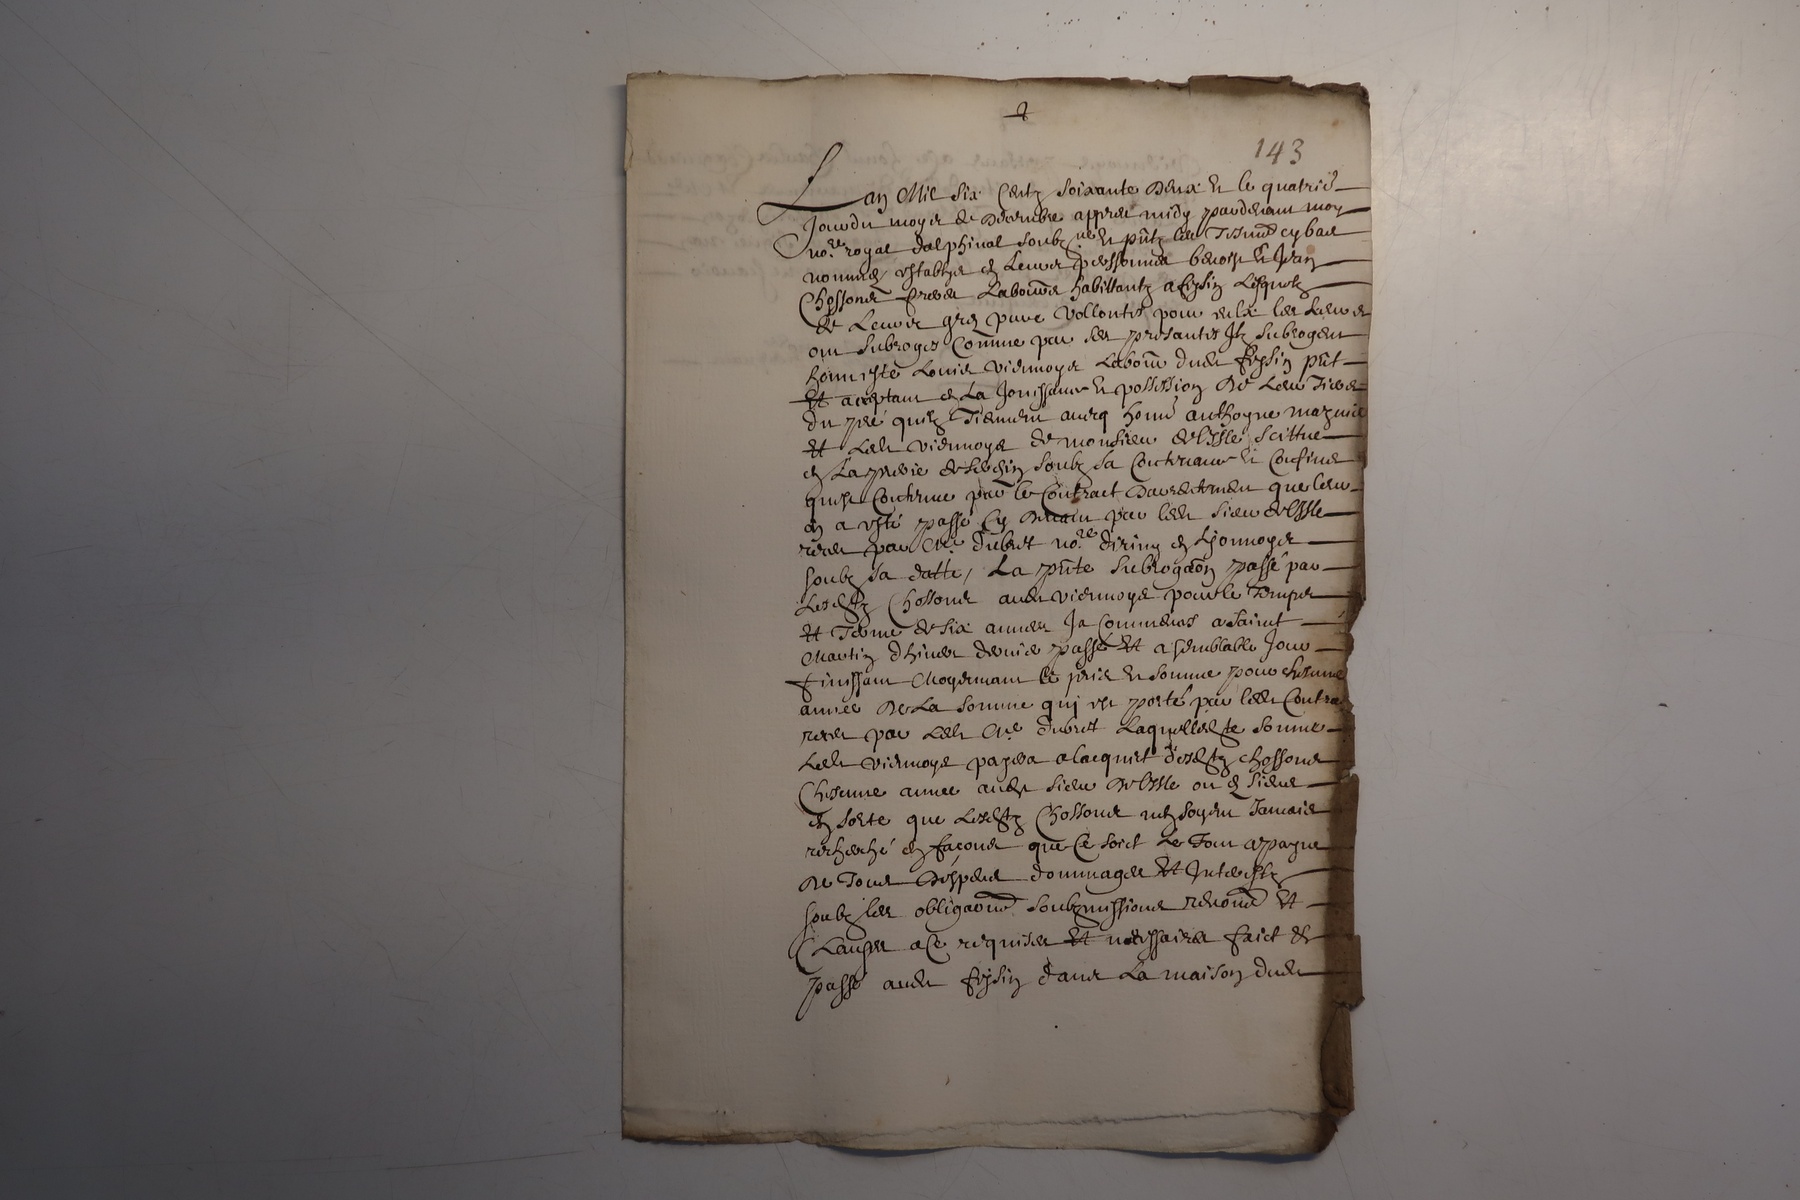 143
Lan Mil six Centz soixante deux Et le quatries
Jour du moys de decembre appres midy pardevant moy
no.re royal dalphinal soubz.ne Et pntz les Tesmo cy bas
nommes, establys en Leurs personnes benoist Et Jean
Chossons freres Laboures habittantz a feysin Lesquelz
de Leurs gres pure vollontes pour eulx les Leurs
ont subroges Comme par ses presantes Ilz subrogent
honneste Louis viemoys Labour dudt feysin pnt
Et aceptant en La Jouissance Et possession de Leur Tiers
du pré quilz Tiennent avecq hone anthoyne mazuier
Et Ledt viemoys de monsieur de lIsle scittue
en La prerie de soubz sa Contenance Et Confines
quest Contenue par le Contract darrentement que leur
en a esté passé Cy devant par ledt sieur de lIsle
receu par Me dubost no.re en Lyonnoys
soubz sa datte, La pnte subrogaon passé par
Lesdtz Chossons audt viemoys pour le Temps
Et Terme de six annees Ja Commences a saint
Martin dhiver dernier passé Et a semblable Jour
finissant Moyennant le pris Et somme pour chescune
annee de La somme qui est porté par ledt Contract
receu par Ledt Me dubost Laquelledte somme
Ledt viemoys payera a lacquict desdtz chossons
Chescune annee audt sieur de lIsle ou es siens
en sorte que Lesdtz Chossons nen soyent Jamais
recherché en facons que Ce soict Le Tout a payne
de Tous despens dommages Et Interestz
soubz les obligaons soubzmissions renon Et
Clauses a Ce requises Et necessaires faict Et
passé audt feysin dans La maison dudt